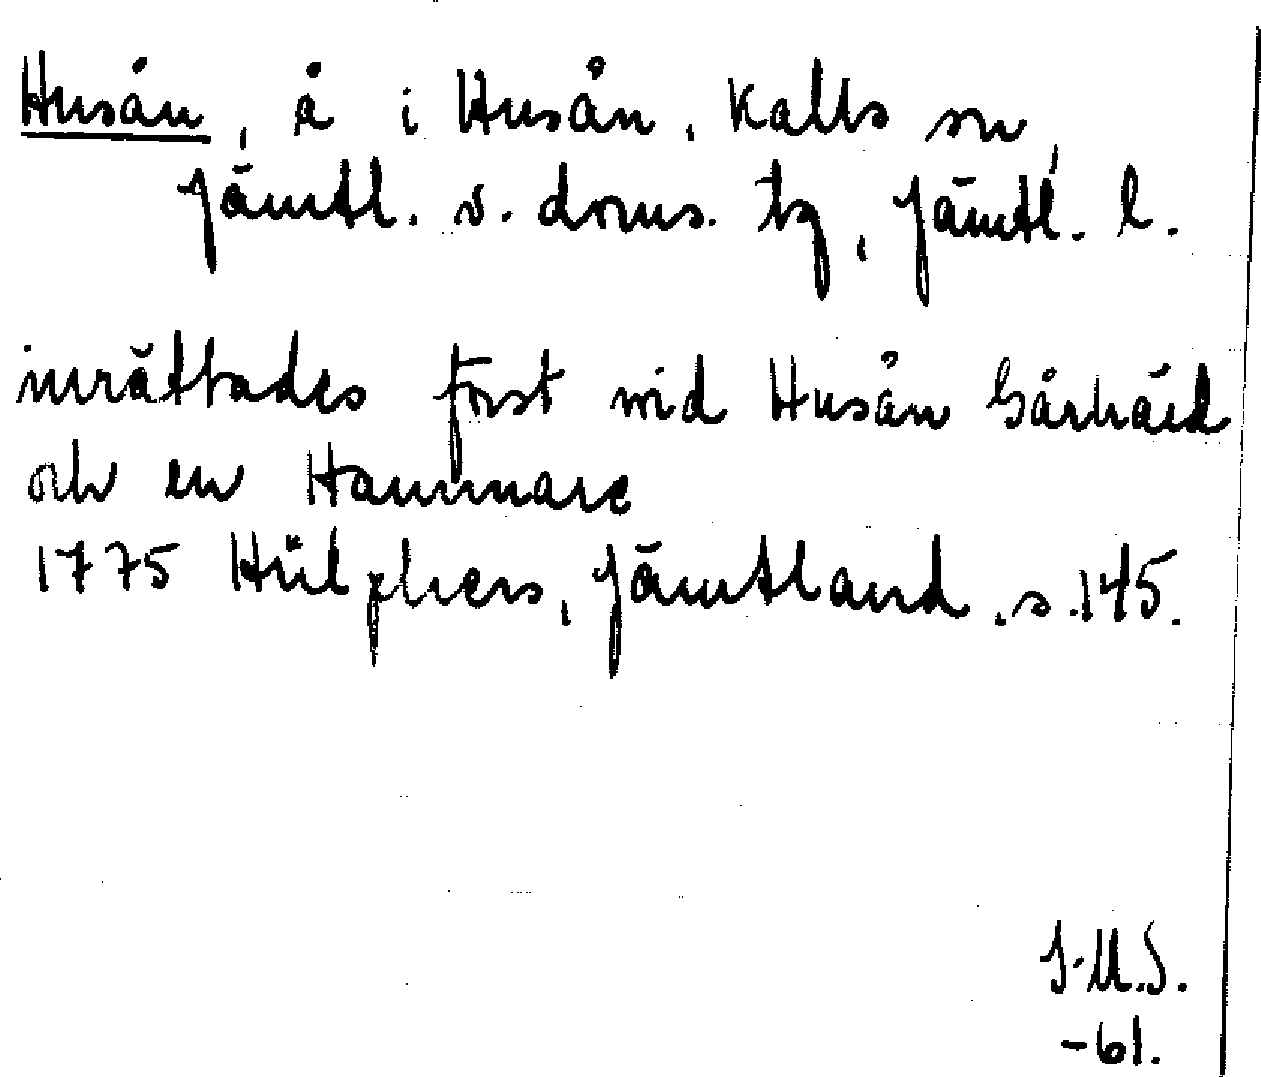 Husån, å i Husån, Kalls sn,
Jämtl. v. doms. tg, Jämtl. l.
inrättades först wid Husån Gårhärd
och en Hammare
1775 Hülphers, Jämtland, s. 145.
I.M.S.
-61.